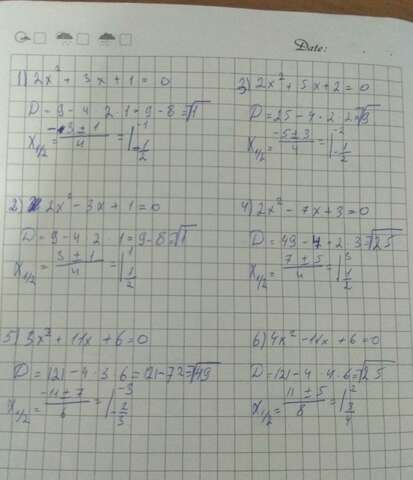 Date:
1) 2x² + 3x + 1 = 0
D = 9 - 4 · 2 · 1 = 9 - 8 = √1
x1/2 = (-3 ± 1)/4 = | -1; -1/2
3) 2x² + 5x + 2 = 0
D = 25 - 4 · 2 · 2 = √9
x1/2 = (-5 ± 3)/4 = | -2; -1/2
2) 2x² - 3x + 1 = 0
D = 9 - 4 · 2 · 1 = 9 - 8 = √1
x1/2 = (3 ± 1)/4 = | 1; 1/2
4) 2x² - 7x + 3 = 0
D = 49 - 4 · 2 · 3 = √25
x1/2 = (7 ± 5)/4 = | 3; 1/2
5) 3x² + 11x + 6 = 0
D = 121 - 4 · 3 · 6 = 121 - 72 = √49
x1/2 = (-11 ± 7)/6 = | -3; -2/3
6) 4x² - 11x + 6 = 0
D = 121 - 4 · 4 · 6 = √25
x1/2 = (11 ± 5)/8 = | 2; 3/4